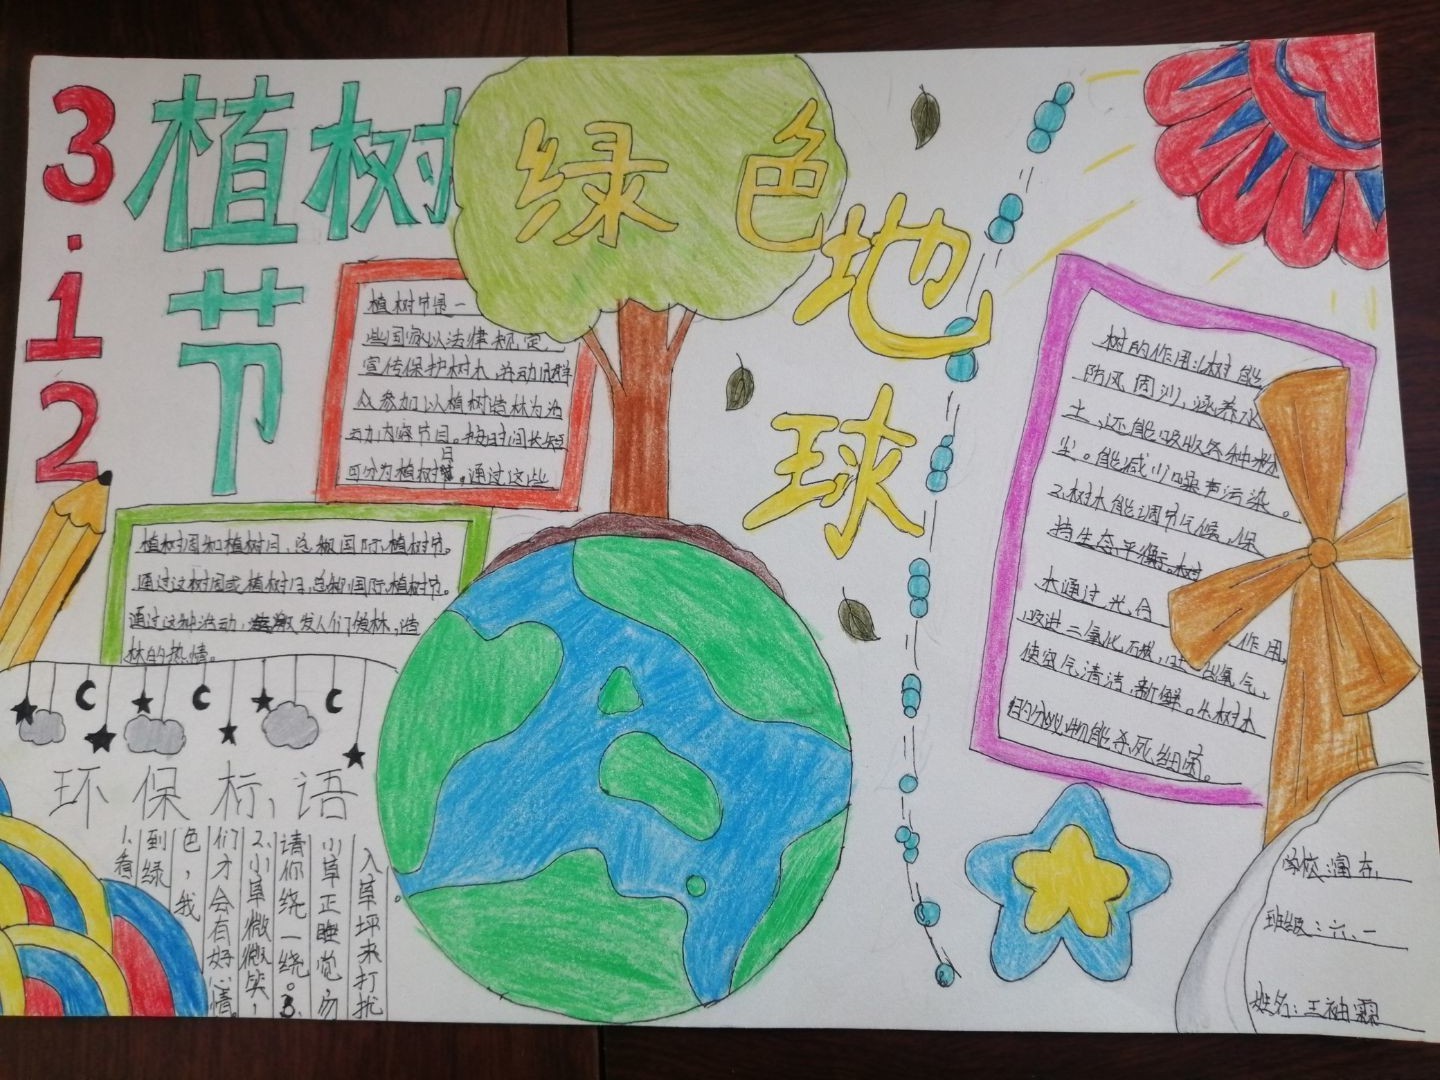 3.12
植树
节
绿色
地
球
植树节是一
些国家以法律规定,
宣传保护树木,并动员群
众参加以植树造林为活
动内容节日。按时间长短
可分为植树日
。通过这些
植树周和植树月,总称国际植树节。
通过这树周或植树月,总称国际植树节。
通过这种活动,激发人们植林,造
林的热情。
树的作用:1.树能
防风固沙,涵养水
土,还能吸收各种粉
尘。能减少噪声污染。
2.树木能调节气候,保
持生态平衡。树
木通过光合
作用,
吸进二氧化碳,吐出氧气,
使空气清洁,新鲜。4.树木
的分泌物能杀死细菌。
环保标语
1.看
到绿
色,我
们才会有好心情。
2.小草微微笑,
请你绕一绕。3.
小草正睡觉,勿
入草坪来打扰。
学校:润东
班级:六、一
姓名:王袖霖